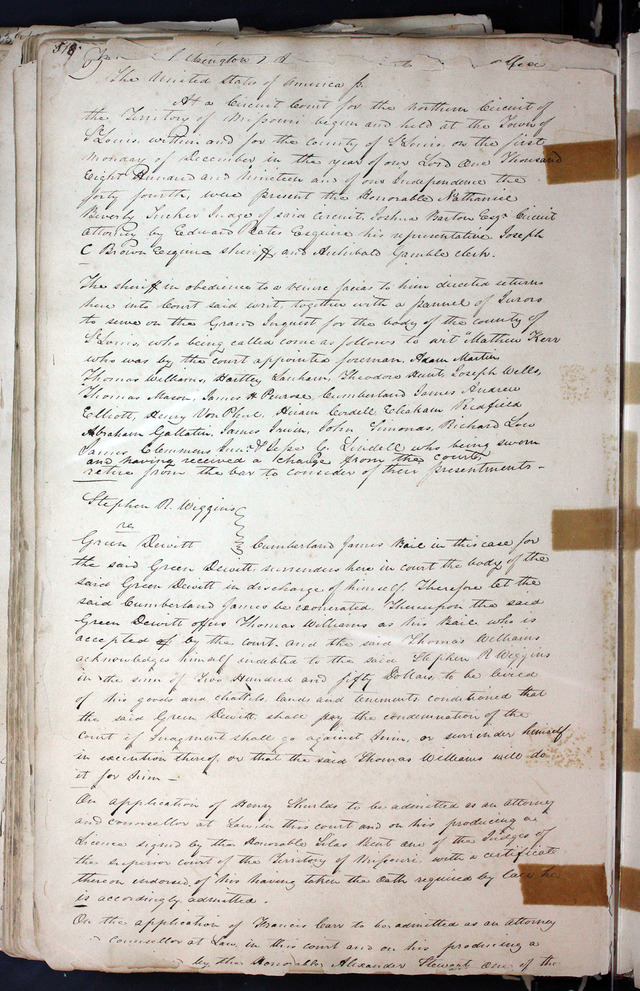 The United States of America
At a Circuit Court for the Northern Circuit of
the Territory of Missouri begun and held at the Town of
St Louis within and for the county of St Louis on the first
Monday of December in the year of our Lord One Thousand
Eight Hundred and Nineteen and of our Independence the
forty fourth, were present the Honorable Nathaniel
Beverly Tucker Judge of said Circuit, Joshua Barton Esqr Circuit
Attorney by Edward Bates Esquire his representative Joseph
C Brown Esquire Sheriff, and Archibald Gamble Clerk.
The Sheriff in obedience to a venire facias to him directed returns
here into Court said writ, together with a pannel of Jurors
to serve on the Grand Inquest for the body of the county of
St Louis, who being called come as follows to wit Mathew Kerr
who was by the court appointed foreman, Adam Martin
Thomas Williams, Hartley Lanham, Theodore Hunt, Joseph Wells,
Thomas Mason, James H Penrose, Cumberland James, Andrew
Elliott, Henry Von Phul, Hiram Cordell, Eliakim Redfield
Abraham Gallatin, James Irwin, John Simonds, Richard Low
James Clemmens Junr & Jesse G. Lindell who being sworn
and having received a charge from the court,
retire from the bar to consider of their presentments -
Stephen R. Wiggins
vs
Green Dewitt Cumberland James Bail in this case for
the said Green Dewitt, surrenders here in court the body of the
said Green Dewitt in discharge of himself. Therefore let the
said Cumberland James be exonerated. Thereupon the said
Green Dewitt offers Thomas Williams as his Bail who is
accepted of by the court. and the said Thomas Williams
acknowledges himself indebted to the said Stephen R Wiggins
in the sum of Two Hundred and fifty Dollars, to be levied
of his goods and chattels, lands and tenements, conditioned that
the said Green Dewitt shall pay the condemnation of the
Court if Judgment shall go against him, or surrender himself
in execution thereof, or that the said Thomas Williams will do
it for him -
On application of Henry Shurlds to be admitted as an attorney
and counsellor at Law, in this court and on his producing a
Licence signed by the Honorable Silas Bent one of the Judges of
the superior court of the Territory of Missouri, with a certificate
thereon endorsed, of his having taken the Oath required by law he
is accordingly admitted.
On the application of Francis Carr to be admitted as an attorney
counsellor at Law, in this court and on his producing a
by the Honorable Alexander Stewart one of the